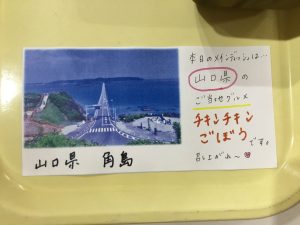 山口県 角島
本日のメインディッシュは…
山口県の
ご当地グルメ
チキンチキン
ごぼうです♪
召し上がれ〜